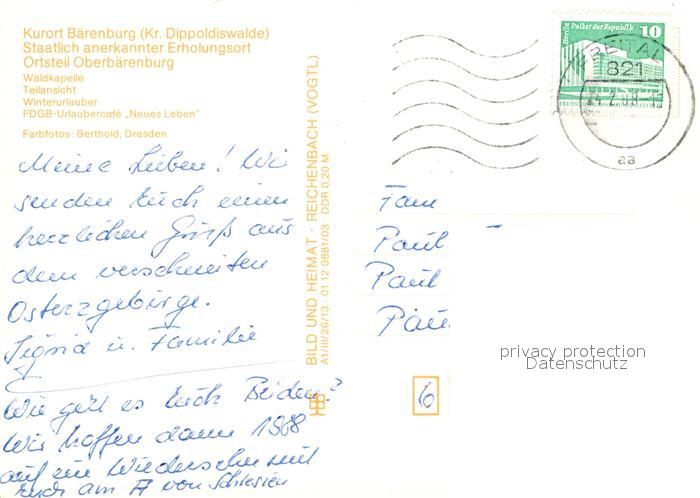 Kurort Bärenburg (Kr. Dippoldiswalde)
Staatlich anerkannter Erholungsort
Ortsteil Oberbärenburg
Waldkapelle
Teilansicht
Winterurlauber
FDGB-Urlaubercafé „Neues Leben"
Farbfotos: Berthold, Dresden
Meine Lieben! Wir
senden Euch einen
herzlichen Gruß aus
dem verschneiten
Osterzgebirge.
Sigrid u. Familie
Wie geht es Euch Beiden?
Wir hoffen dann 1988
auf ein Wiedersehn mit
Euch am von Schlesien
BILD UND HEIMAT · REICHENBACH (VOGTL)
A1/III/26/13 · 01 12 0881/03 · DDR 0,20 M
Berlin, Palast der Republik
10
FREITAL
821
aa
Fam
Paul
Paul
Pau
6
privacy protection
Datenschutz